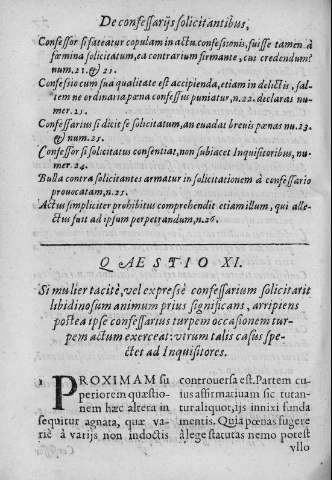 De confessarijs solicitantibus,
Confessor si fateatur copulam in actu confessionis, fuisse tamen à
fœmina solicitatum, ea contrarium firmante, cui credendum?
num. 21. & 21.
Confessio cum sua qualitate est accipienda, etiam in delictis, sal-
tem ne ordinaria pœna confessus puniatur, n. 22. declaras nu-
mer. 23.
Confessarius si dicit se solicitatum, an euadat breuis pœnas nu. 23.
& num. 25.
Confessor si solicitatus consentiat, non subiacet Inquisitoribus, nu-
mer. 24.
Bulla contra solicitantes armatur in solicitationem à confessario
prouocatam, n. 25.
Actus simpliciter prohibitus comprehendit etiam illum, qui alle-
ctus fuit ad ipsum perpetrandum, n. 26.
QVAESTIO XI.
Si mulier tacitè, vel expresè confessarium solicitarit
libidinosum animum prius significans, arripiens
postea ipse confessarius turpem occasionem tur-
pem actum exerceat: vtrum talis casus spe-
ctet ad Inquisitores.
1 PROXIMAM su
periorem quæstio-
nem hæc altera in
sequitur agnata, quæ va-
riè à varijs non indoctis
controuersa est. Partem cu-
ius affirmatiuam sic tutan-
tur aliquot, ijs innixi funda
mentis. Quia pœnas sugere
à lege statutas nemo potest
vllo